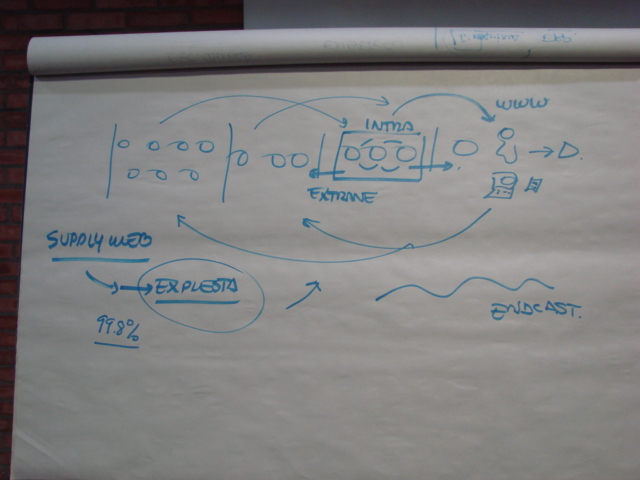 WWW
INTRA
D.
EXTRANE
SUPPLY WEB
EXPLESTA
99.8%
ENDCAST.